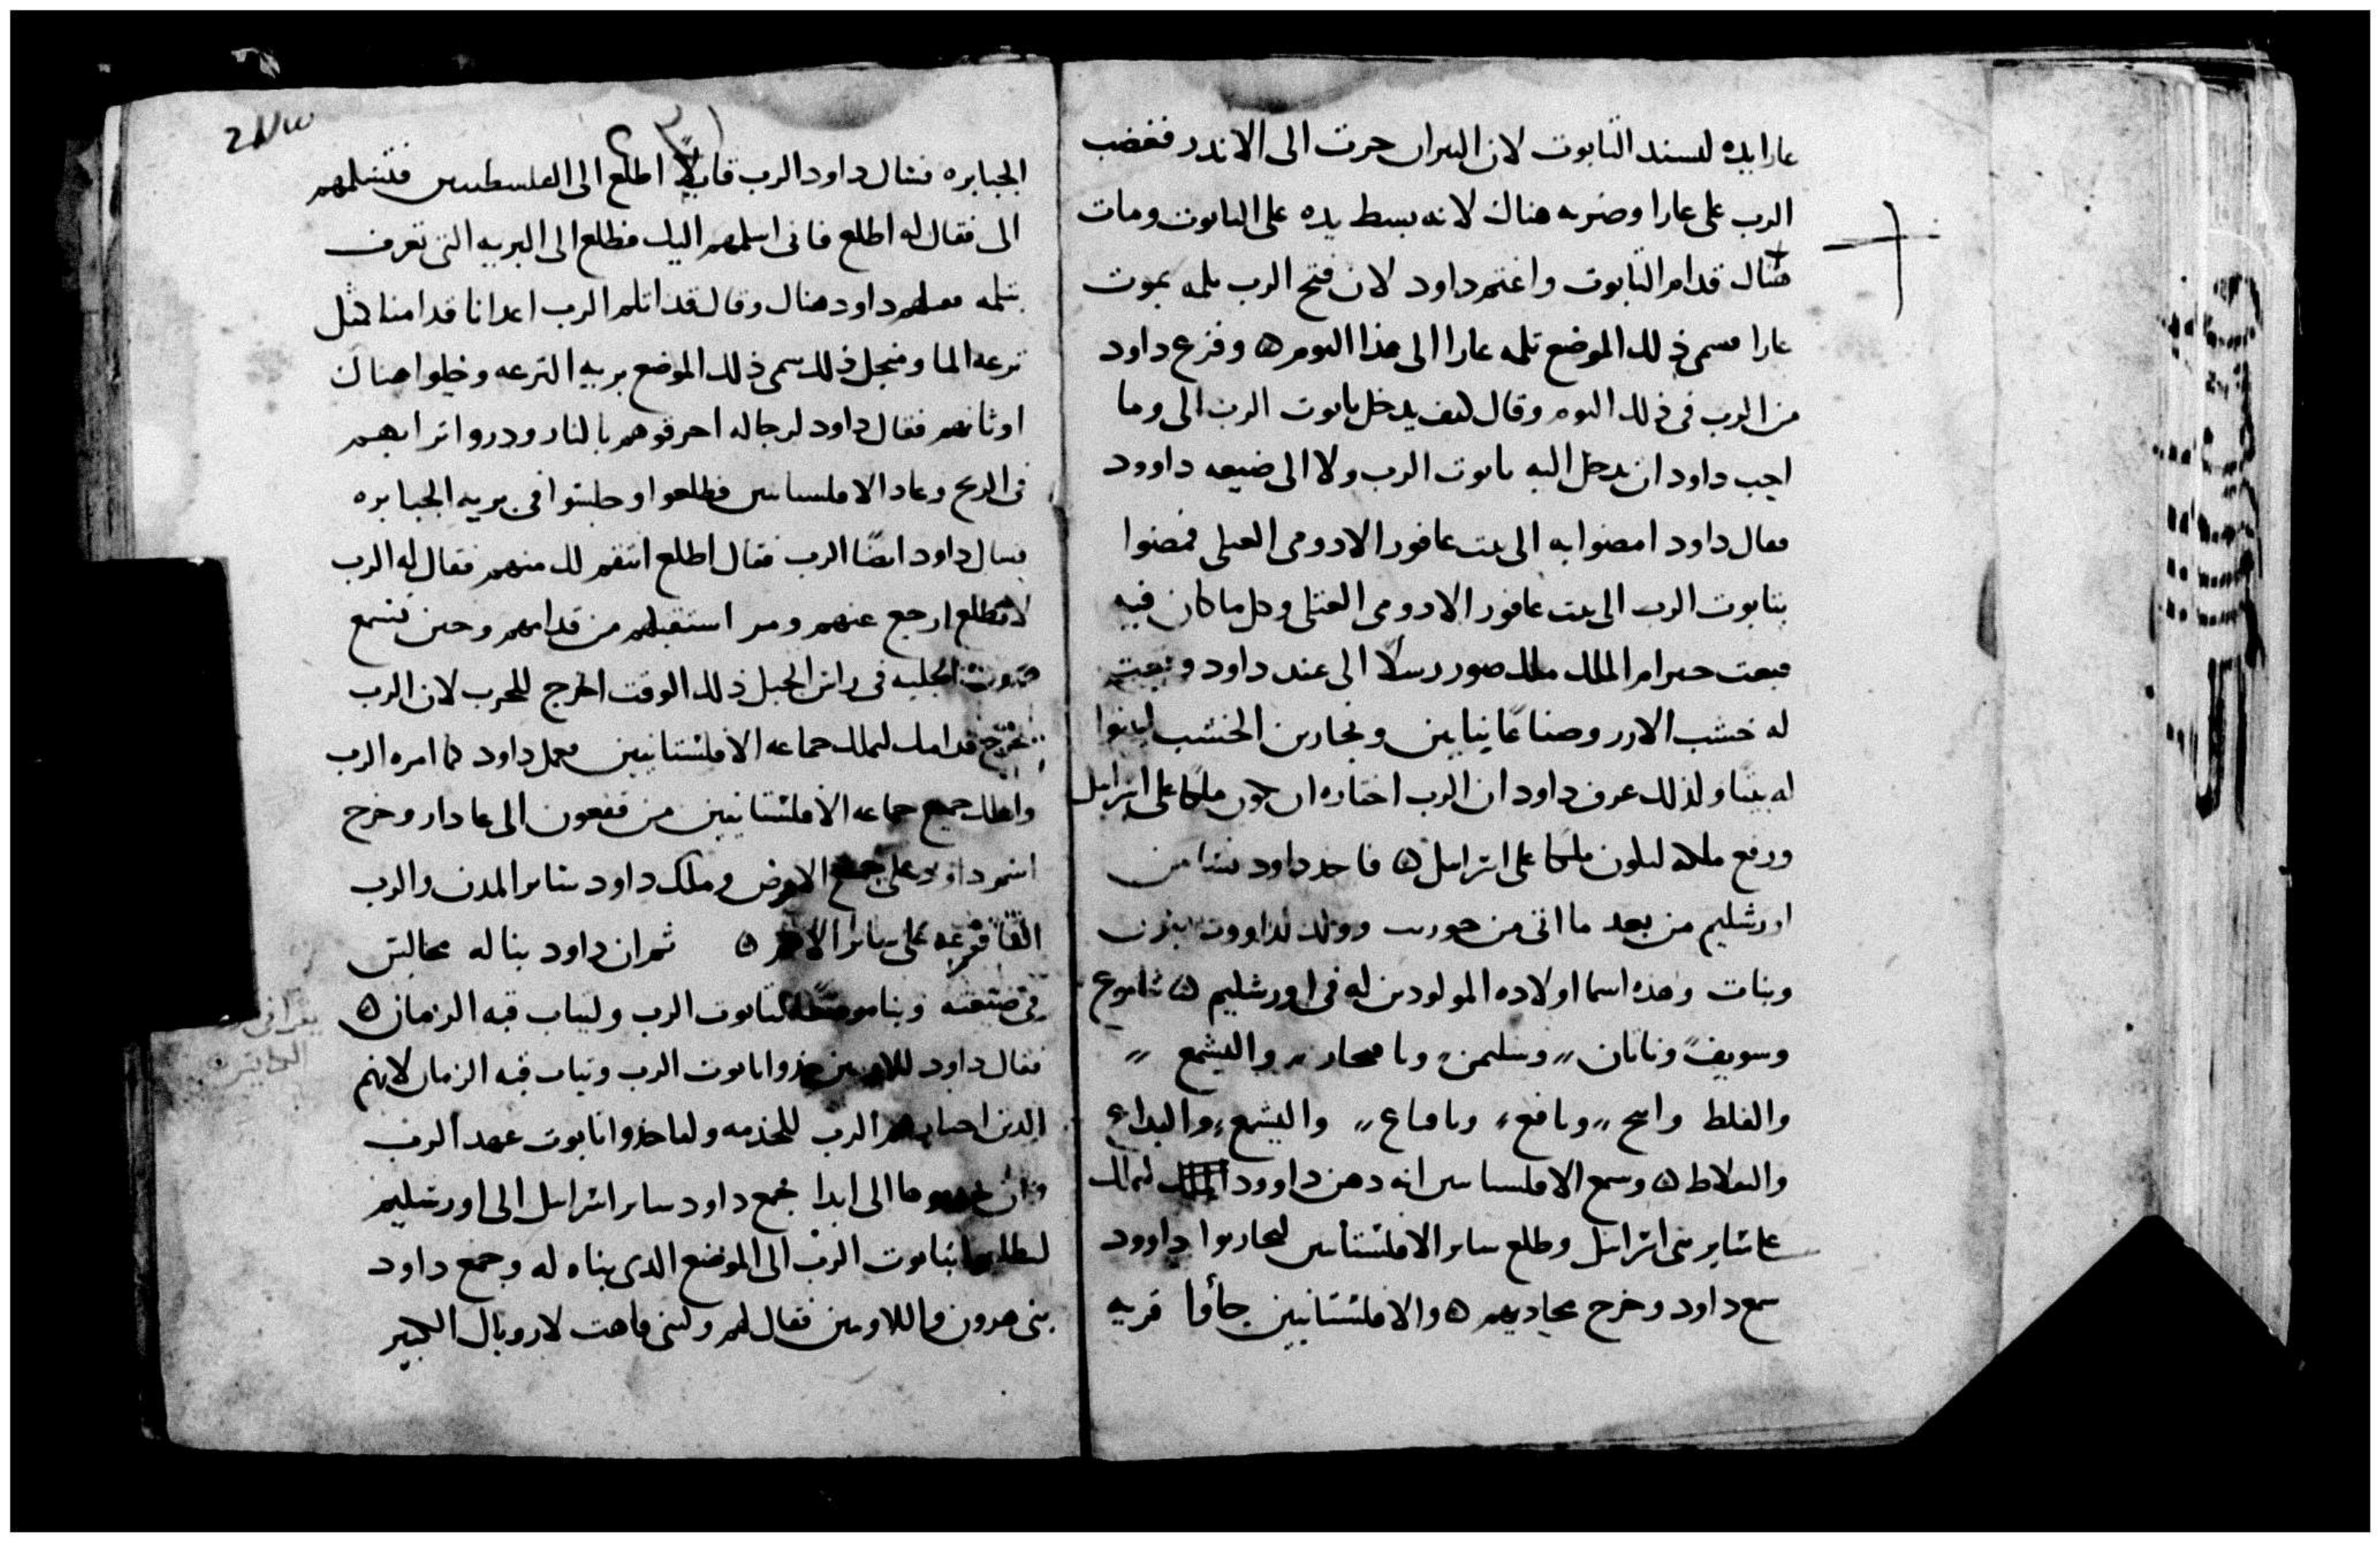 عازا يده ليسند التابوت لان التيران جرت الى الاندر فغضب
الرب على عازا وضربه هناك لانه بسط يده على التابوت ومات
هناك قدام التابوت واغتم داود لان فتح الرب ثلمه بموت
عازا فسمى ذلك الموضع ثلمه عازا الى هذا اليوم ۞ وفزع داود
من الرب فى ذلك اليوم وقال كيف يدخل تابوت الرب الى وما
احب داود ان يدخل اليه تابوت الرب ولا الى ضيعه داوود
فقال داود امضوا به الى بيت عافور الادومى فمضوا
بتابوت الرب الى بيت عافور الادومى وكل ما كان فيه
فبعت حيرام الملك ملك صور رسلًا الى عند داود وبعت
له خشب الارز وصناعًا بنايين ونجارين الخشب ليبنوا
له بيتًا ولذلك عرف داود ان الرب اختاره ان يكون ملكًا على اسرايل
ورفع ملكه ليكون ملكًا على اسرايل ۞ فاخذ داود نسا من
اورشليم من بعد ما اتى من وولد لداوود بنين
وبنات وهذه اسما اولاده المولودين له فى اورشليم ۞
وسويف وناتان وسليمن واليشمع
والفلط ونافع واليشمع
۞ وسمع الافلستانيين انه دهن داوود لملك
على ساير بنى اسرايل وطلع ساير الافلستانيين ليحاربوا داوود
سمع داود وخرج يحاربهم ۞ والافلستانيين جاوا قريه
الجبابره فسال داود الرب قايلًا اطلع الى الفلسطيين فتسلمهم
الى فقال له اطلع فانى اسلمهم اليك فطلع الى البريه التى تعرف
بثلمه داود هناك وقال قد اثلم الرب اعدانا قدامنا مثل
ترعه الما ومنجل ذلك سمى ذلك الموضع بريه الترعه وخلوا هناك
اوثانهم فقال داود لرجاله احرقوهم بالنار ودروا ترابهم
فى الريح وعاد الافلستانيين فطلعوا وجلسوا فى بريه الجبابره
فسال داود ايضًا الرب فقال اطلع انتقم لك منهم فقال له الرب
لا تطلع ارجع عنهم ومر استقبلهم من قدامهم وحين تسمع
صوت الجلبه فى راس الجبل ذلك الوقت اخرج للحرب لان الرب
يخرج قدامك ليهلك جماعه الافلستانيين فعمل داود كما امره الرب
واهلك جميع جماعه الافلستانيين من قفعون الى عادار وخرج
اسم داود على جميع الارض وملك داود ساير المدن والرب
القا فزعه على ساير الامم ۞ ثم ان داود بنا له مجالس
فى ضيعته وبنا موضعًا لتابوت الرب ولباب قبه الزمان ۞
فقال داود للاويين خذوا تابوت الرب وباب قبه الزمان لانهم
الذين اختارهم الرب للخدمه ولياخذوا تابوت عهد الرب
وان يخدموها الى ابدا فجمع داود ساير اسرايل الى اورشليم
ليطلعوا بتابوت الرب الى الموضع الذى بناه له وجمع داود
بنى هرون واللاويين فقال لهم